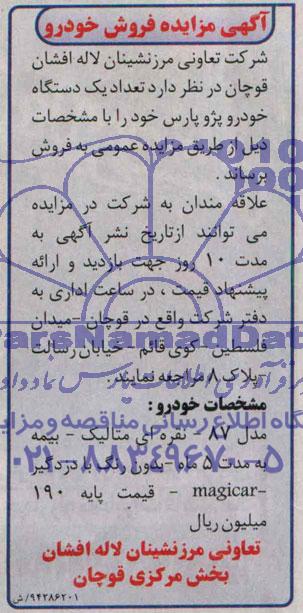 آگهی مزایده فروش خودرو
شرکت تعاونی مرزنشینان لاله افشان
قوچان در نظر دارد تعداد یک دستگاه
خودرو پژو پارس خود را با مشخصات
ذیل از طریق مزایده عمومی به فروش
برساند.
علاقه مندان به شرکت در مزایده
می توانند از تاریخ نشر آگهی به
مدت ۱۰ روز جهت بازدید و ارائه
پیشنهاد قیمت، در ساعت اداری به
دفتر شرکت واقع در قوچان - میدان
فلسطین - کوی قائم - خیابان رسالت
- پلاک ۸ مراجعه نمایند.
مشخصات خودرو:
مدل ۸۷ - نقره ای متالیک - بیمه
به مدت ۵ ماه - بدون رنگ با دزدگیر
magicar - قیمت پایه ۱۹۰
میلیون ریال
تعاونی مرزنشینان لاله افشان
بخش مرکزی قوچان
۹۴۲۸۶۲۰۱/ش
ParsNamadData
پایگاه اطلاع رسانی مناقصه و مزایده
۰۲۱-۸۸۳۴۹۶۷۰-۵